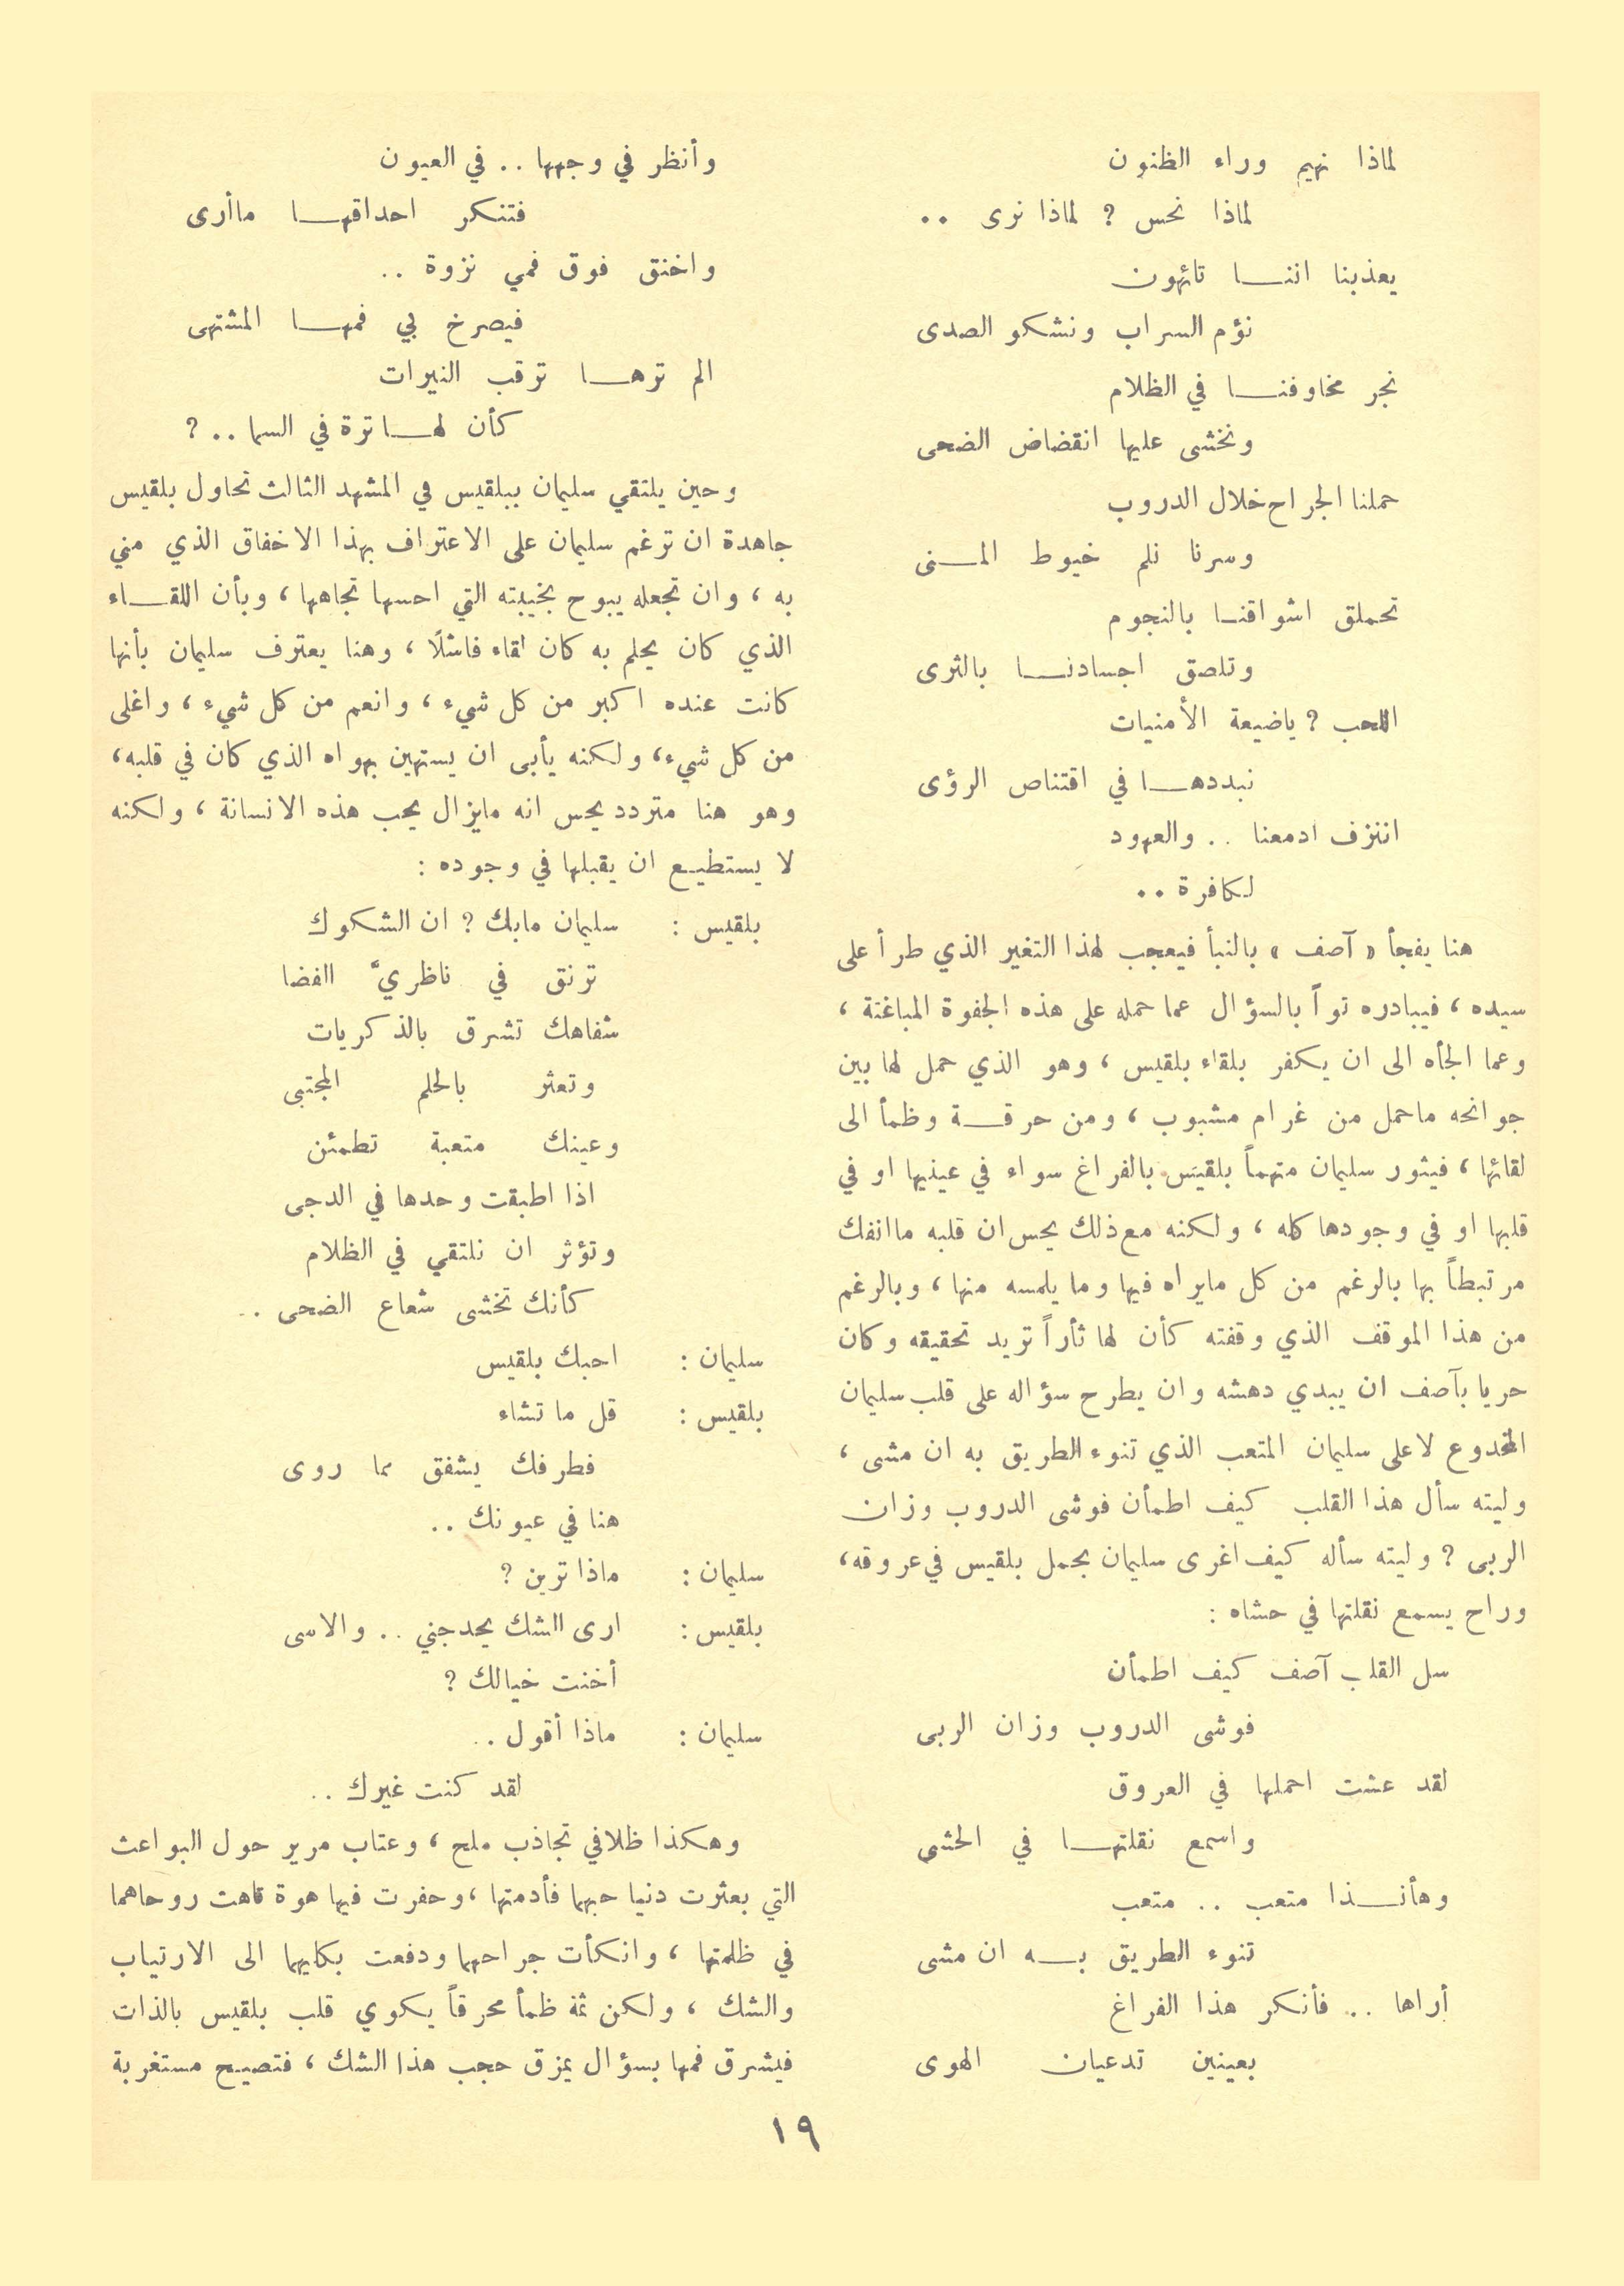 لماذا نهيم وراء الظنون
لماذا نحس ؟ لماذا نرى ..
يعذبنا اننا تائهون
نؤم السراب ونشكو الصدى
نجر مخاوفنا في الظلام
ونخشى عليها انقضاض الضحى
حملنا الجراح خلال الدروب
وسرنا نلم خيوط المنى
تحملق اشواقنا بالنجوم
وتلصق اجسادنا بالثرى
اللحب ؟ ياضيعة الأمنيات
نبددها في اقتناص الرؤى
اننزف ادمعنا .. والعهود
لكافرة ..
هنا يفجأ « آصف » بالنبأ فيعجب لهذا التغير الذي طرأ على
سيده ، فيبادره تواً بالسؤال عما حمله على هذه الجفوة المباغتة ،
وعما الجأه الى ان يكفر بلقاء بلقيس ، وهو الذي حمل لها بين
جوانحه ماحمل من غرام مشبوب ، ومن حرقة وظمأ الى
لقائها ، فيثور سليمان متهماً بلقيس بالفراغ سواء في عينيها او في
قلبها او في وجودها كله ، ولكنه مع ذلك يحس ان قلبه ماانفك
مرتبطاً بها بالرغم من كل مايراه فيها وما يلمسه منها ، وبالرغم
من هذا الموقف الذي وقفته كأن لها ثأراً تريد تحقيقه وكان
حريا بآصف ان يبدي دهشه وان يطرح سؤاله على قلب سليمان
المخدوع لا على سليمان المتعب الذي تنوء الطريق به ان مشى ،
وليته سأل هذا القلب كيف اطمأن فوشى الدروب وزان
الربى ؟ وليته سأله كيف اغرى سليمان بحمل بلقيس في عروقه،
وراح يسمع نقلتها في حشاه :
سل القلب آصف كيف اطمأن
فوشى الدروب وزان الربى
لقد عشت احملها في العروق
واسمع نقلتها في الحشى
وهأنذا متعب .. متعب
تنوء الطريق به ان مشى
أراها .. فأنكر هذا الفراغ
بعينين تدعيان الهوى
وأنظر في وجهها .. في العيون
فتنكر احداقها ماأرى
واخنق فوق فمي نزوة ..
فيصرخ بي فمها المشتهى
الم ترها ترقب النيرات
كأن لها ترة في السما .. ؟
وحين يلتقي سليمان ببلقيس في المشهد الثالث تحاول بلقيس
جاهدة ان ترغم سليمان على الاعتراف بهذا الاخفاق الذي مني
به ، وان تجعله يبوح بخيبته التي احسها تجاهها ، وبأن اللقاء
الذي كان يحلم به كان لقاء فاشلًا ، وهنا يعترف سليمان بأنها
كانت عنده اكبر من كل شيء ، وانعم من كل شيء ، واغلى
من كل شيء، ولكنه يأبى ان يستهين بهواه الذي كان في قلبه،
وهو هنا متردد يحس انه مايزال يحب هذه الانسانة ، ولكنه
لا يستطيع ان يقبلها في وجوده :
بلقيس : سليمان مابك ؟ ان الشكوك
ترنق في ناظريّ الفضا
شفاهك تشرق بالذكريات
وتعثر بالحلم المجتبى
وعينك متعبة تطمئن
اذا اطبقت وحدها في الدجى
وتؤثر ان نلتقي في الظلام
كأنك تخشى شعاع الضحى ..
سليمان : احبك بلقيس
بلقيس : قل ما تشاء
فطرفك يشفق مما روى
هنا في عيونك ..
سليمان : ماذا ترين ؟
بلقيس : ارى الشك يحدجني .. والاسى
أخنت خيالك ؟
سليمان : ماذا أقول ..
لقد كنت غيرك ..
وهكذا ظلا في تجاذب ملح ، وعتاب مرير حول البواعث
التي بعثرت دنيا حبهما فأدمتها ، وحفرت فيها هوة تاهت روحاهما
في ظلمتها ، وانكأت جراحهما ودفعت بكليهما الى الارتياب
والشك ، ولكن ثمة ظمأ محرقاً يكوي قلب بلقيس بالذات
فيشرق فمها بسؤال يمزق حجب هذا الشك ، فتصيح مستغربة
١٩